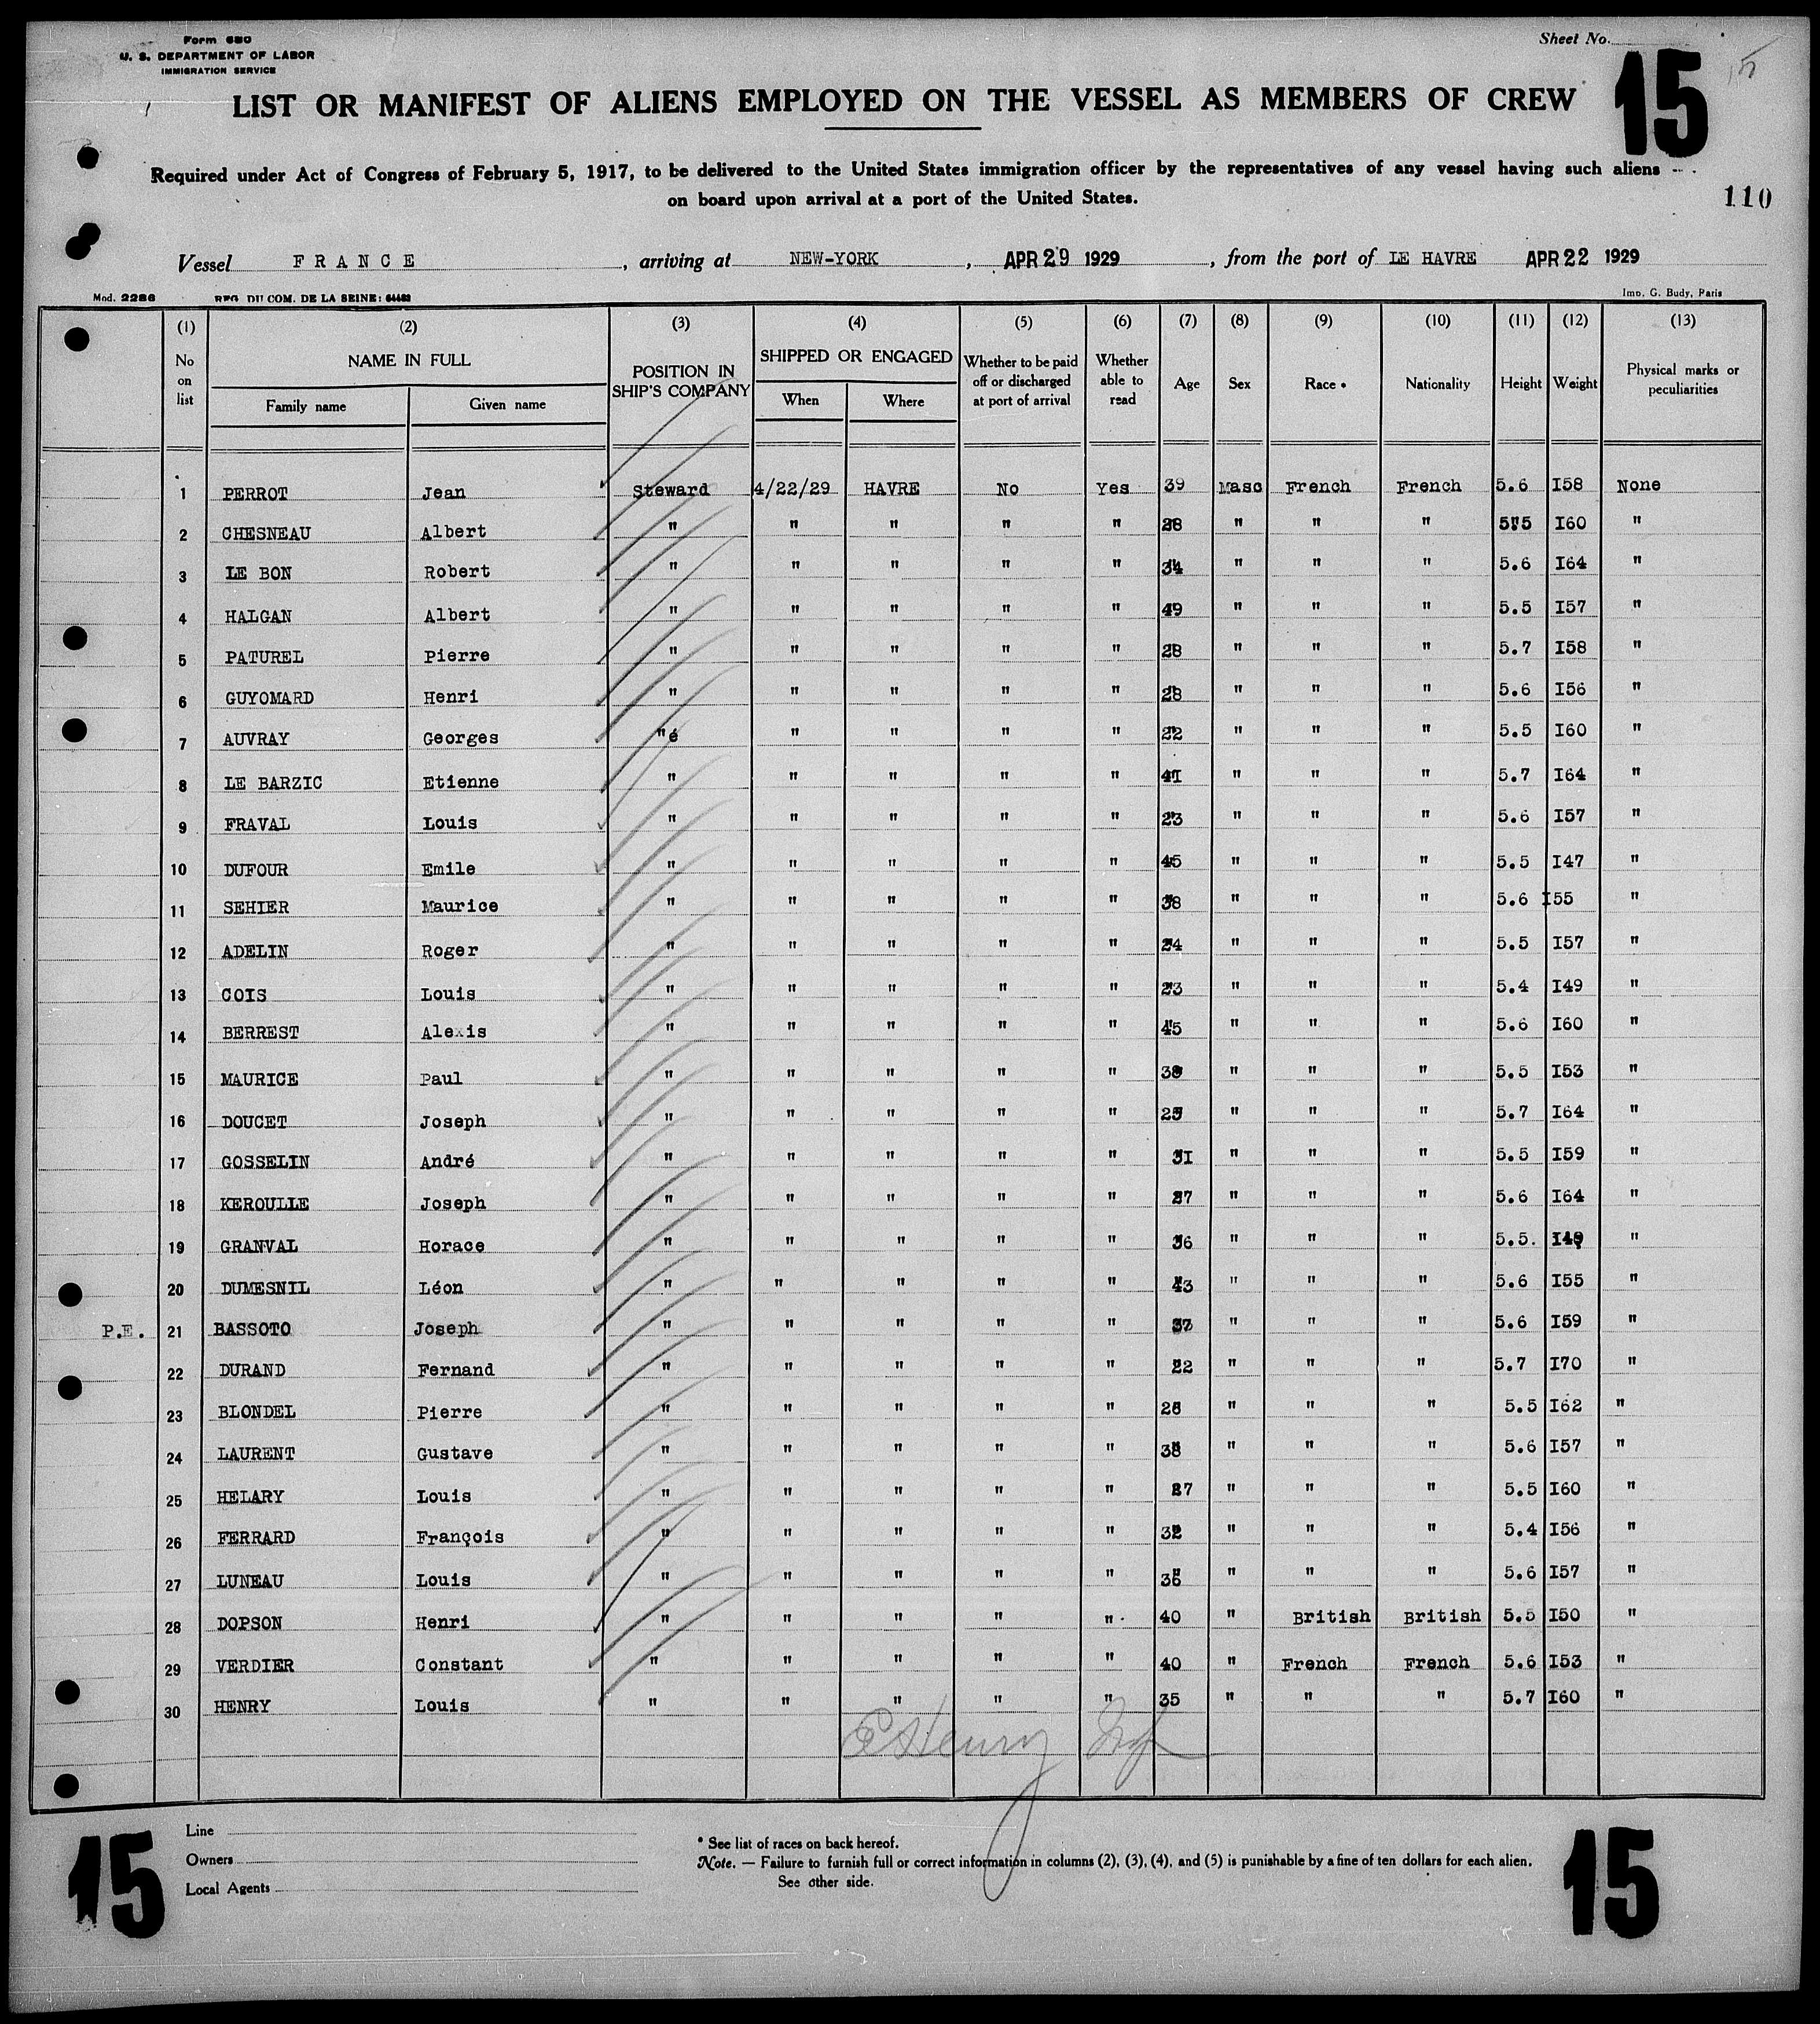 Form 680
U. S. DEPARTMENT OF LABOR
IMMIGRATION SERVICE
Sheet No.
15
15
LIST OR MANIFEST OF ALIENS EMPLOYED ON THE VESSEL AS MEMBERS OF CREW
Required under Act of Congress of February 5, 1917, to be delivered to the United States immigration officer by the representatives of any vessel having such aliens
on board upon arrival at a port of the United States.
110
Vessel FRANCE, arriving at NEW-YORK, APR 29 1929, from the port of LE HAVRE APR 22 1929
Mod. 2286 REG. DU COM. DE LA SEINE: Imp. G. Budy, Paris
(1) (2) (3) (4) (5) (6) (7) (8) (9) (10) (11) (12) (13)
No on list NAME IN FULL Family name Given name POSITION IN SHIP'S COMPANY SHIPPED OR ENGAGED When Where Whether to be paid off or discharged at port of arrival Whether able to read Age Sex Race * Nationality Height Weight Physical marks or peculiarities
1 PERROT Jean Steward 4/22/29 HAVRE No Yes 39 Masc French French 5.6 I58 None
2 CHESNEAU Albert " " " " " 28 " " " 5"5 I60 "
3 LE BON Robert " " " " " 34 " " " 5.6 I64 "
4 HALGAN Albert " " " " " 49 " " " 5.5 I57 "
5 PATUREL Pierre " " " " " 28 " " " 5.7 I58 "
6 GUYOMARD Henri " " " " " 28 " " " 5.6 I56 "
7 AUVRAY Georges "é " " " " 22 " " " 5.5 I60 "
8 LE BARZIC Etienne " " " " " 4I " " " 5.7 I64 "
9 FRAVAL Louis " " " " " 23 " " " 5.6 I57 "
10 DUFOUR Emile " " " " " 45 " " " 5.5 I47 "
11 SEHIER Maurice " " " " " 38 " " " 5.6 I55 "
12 ADELIN Roger " " " " " 24 " " " 5.5 I57 "
13 COIS Louis " " " " " 23 " " " 5.4 I49 "
14 BERREST Alexis " " " " " 45 " " " 5.6 I60 "
15 MAURICE Paul " " " " " " " " 5.5 I53 "
16 DOUCET Joseph " " " " " " " " 5.7 I64 "
17 GOSSELIN André " " " " " 3I " " " 5.5 I59 "
18 KEROULLE Joseph " " " " " " " " 5.6 I64 "
19 GRANVAL Horace " " " " " 36 " " " 5.5. I49 "
20 DUMESNIL Léon " " " " " 43 " " " 5.6 I55 "
P.E. 21 BASSOTO Joseph " " " " " " " " 5.6 I59 "
22 DURAND Fernand " " " " " 22 " " " 5.7 I70 "
23 BLONDEL Pierre " " " " " " " " 5.5 I62 "
24 LAURENT Gustave " " " " " 38 " " " 5.6 I57 "
25 HELARY Louis " " " " " " " " 5.5 I60 "
26 FERRARD François " " " " " 32 " " " 5.4 I56 "
27 LUNEAU Louis " " " " " " " " 5.6 I57 "
28 DOPSON Henri " " " " " 40 " British British 5.5 I50 "
29 VERDIER Constant " " " " " 40 " French French 5.6 I53 "
30 HENRY Louis " " " " " 35 " " " 5.7 I60 "
Line
Owners
Local Agents
* See list of races on back hereof.
Note. — Failure to furnish full or correct information in columns (2), (3), (4), and (5) is punishable by a fine of ten dollars for each alien.
See other side.
15
15